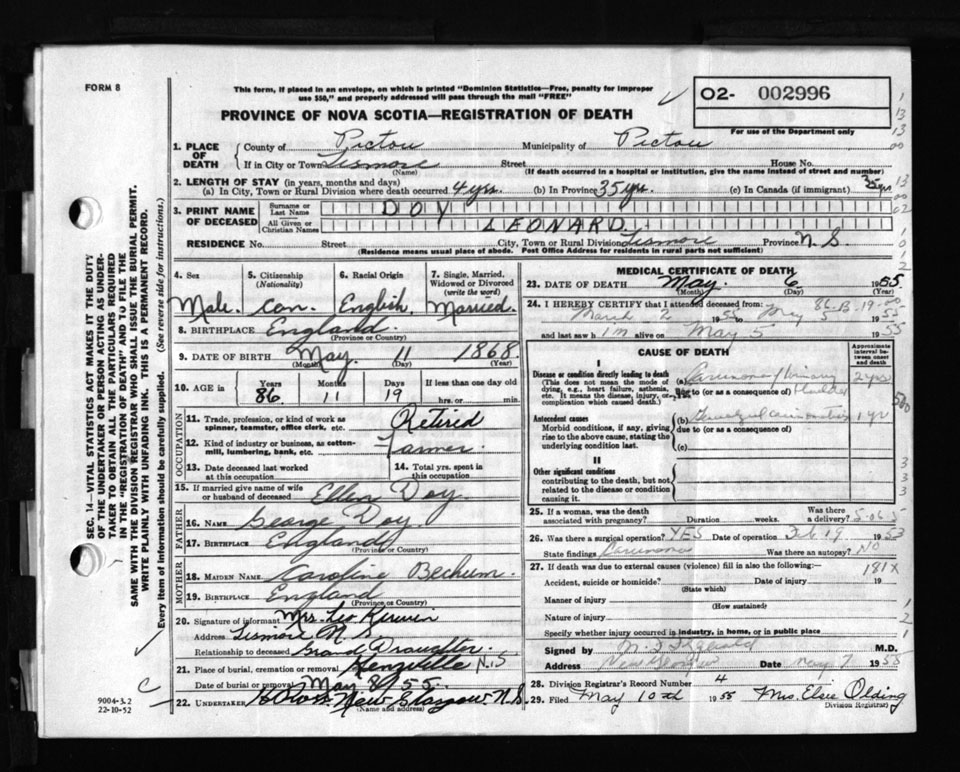 FORM 8
This form, if placed in an envelope, on which is printed "Dominion Statistics—Free, penalty for improper
use $50," and properly addressed will pass through the mail "FREE"
O2- 002996
For use of the Department only
PROVINCE OF NOVA SCOTIA—REGISTRATION OF DEATH
1. PLACE OF DEATH { County of Pictou Municipality of Pictou
If in City or Town Lismore Street House No.
(Name) (If death occurred in a hospital or institution, give the name instead of street and number)
2. LENGTH OF STAY (in years, months and days)
(a) In City, Town or Rural Division where death occurred 4 yrs. (b) In Province 35 yrs. (c) In Canada (if immigrant) 35 yrs
3. PRINT NAME OF DECEASED { Surname or Last Name DOY
All Given or Christian Names LEONARD
RESIDENCE No. Street City, Town or Rural Division Lismore Province N.S.
(Residence means usual place of abode. Post Office Address for residents in rural parts not sufficient)
4. Sex Male.
5. Citizenship (Nationality) Can.
6. Racial Origin English.
7. Single, Married, Widowed or Divorced (write the word) Married.
8. BIRTHPLACE England.
(Province or Country)
9. DATE OF BIRTH May 11 1868.
(Month) (Day) (Year)
10. AGE in { Years 86 Months 11 Days 19 If less than one day old hrs. or min.
OCCUPATION
11. Trade, profession, or kind of work as spinner, teamster, office clerk, etc. Retired
12. Kind of industry or business, as cotton-mill, lumbering, bank, etc. Farmer
13. Date deceased last worked at this occupation
14. Total yrs. spent in this occupation
15. If married give name of wife or husband of deceased Ellen Doy.
FATHER
16. NAME George Doy.
17. BIRTHPLACE England
(Province or Country)
MOTHER
18. MAIDEN NAME Caroline Bechum.
19. BIRTHPLACE England
(Province or Country)
20. Signature of informant Mrs. Leo Kerwin
Address Lismore N.S.
Relationship to deceased Grand Draughter
21. Place of burial, cremation or removal N.S
Date of burial or removal May 8 1955.
22. UNDERTAKER New Glasgow N.S.
(Name and address)
MEDICAL CERTIFICATE OF DEATH
23. DATE OF DEATH May. 6 1955
(Month) (Day) (Year)
86-B 19-00
24. I HEREBY CERTIFY that I attended deceased from
March 2 1955 to May 5 1955
and last saw him alive on May 5 1955
CAUSE OF DEATH
Approximate interval between onset and death
I
Disease or condition directly leading to death
(This does not mean the mode of dying, e.g., heart failure, asthenia, etc. It means the disease, injury, or complication which caused death.)
(a) Carcinoma of urinary bladder 2 yrs
due to (or as a consequence of)
Antecedent causes
Morbid conditions, if any, giving rise to the above cause, stating the underlying condition last.
(b) 1 yr
due to (or as a consequence of)
(c)
II
Other significant conditions
contributing to the death, but not related to the disease or condition causing it.
25. If a woman, was the death associated with pregnancy? Duration weeks. Was there a delivery?
26. Was there a surgical operation? YES Date of operation Feb 19 1953
State findings Carcinoma Was there an autopsy? NO
27. If death was due to external causes (violence) fill in also the following:— 181X
Accident, suicide or homicide? Date of injury 19
(State which)
Manner of injury
(How sustained)
Nature of injury
Specify whether injury occurred in industry, in home, or in public place
Signed by M.D.
Address New Glasgow Date May 7 1955
28. Division Registrar's Record Number 4
29. Filed May 10th 1955 Mrs. Elsie Olding
Division Registrar
SEC. 14—VITAL STATISTICS ACT MAKES IT THE DUTY
OF THE UNDERTAKER OR PERSON ACTING AS UNDER-
TAKER TO OBTAIN ALL THE PARTICULARS REQUIRED
IN THE "REGISTRATION OF DEATH" AND TO FILE THE
SAME WITH THE DIVISION REGISTRAR WHO SHALL ISSUE THE BURIAL PERMIT.
WRITE PLAINLY WITH UNFADING INK. THIS IS A PERMANENT RECORD.
Every item of information should be carefully supplied. (See reverse side for instructions.)
9004-3.2
22-10-52